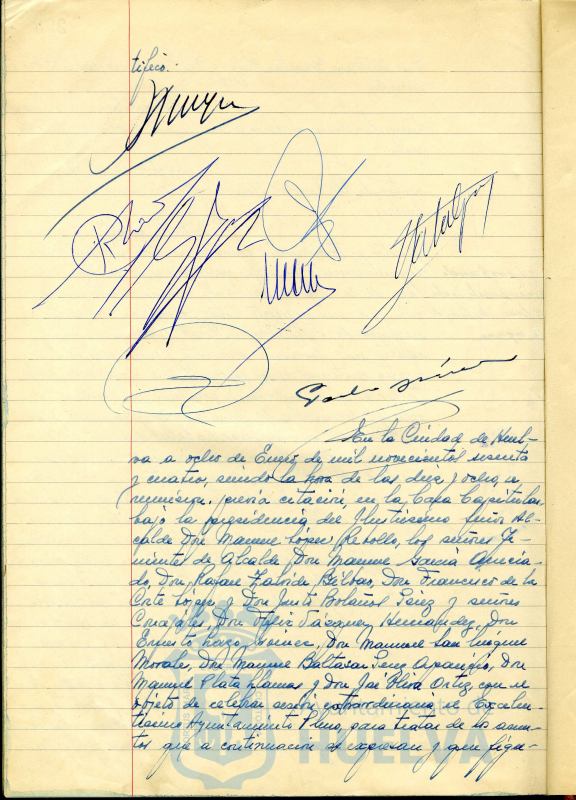 tifico.
En la Ciudad de Huel-
va a ocho de Enero de mil novecientos sesenta
y cuatro, siendo la hora de las diez y ocho, se
reunieron, previa citación, en la Casa Capitular
bajo la presidencia del Ilustrísimo Señor Al-
calde Don Manuel López Rebollo, los señores Te-
nientes de Alcalde, Don Manuel García
Don Rafael Bilbao, Don Francisco de la
Corte López y Don Justo Bolaños Pérez y señores
Concejales, Don Vázquez Hernández, Don
Ernesto Don Manuel San
Morales, Don Manuel Baltasar Pena Aparicio, Don
Manuel Plata Llamas y Don José Oliva Ortiz, con el
objeto de celebrar sesión extraordinaria el Excelen-
tísimo Ayuntamiento Pleno, para tratar de los asun-
tos que a continuación se expresan y que figu-
Ayuntamiento de
HUELVA